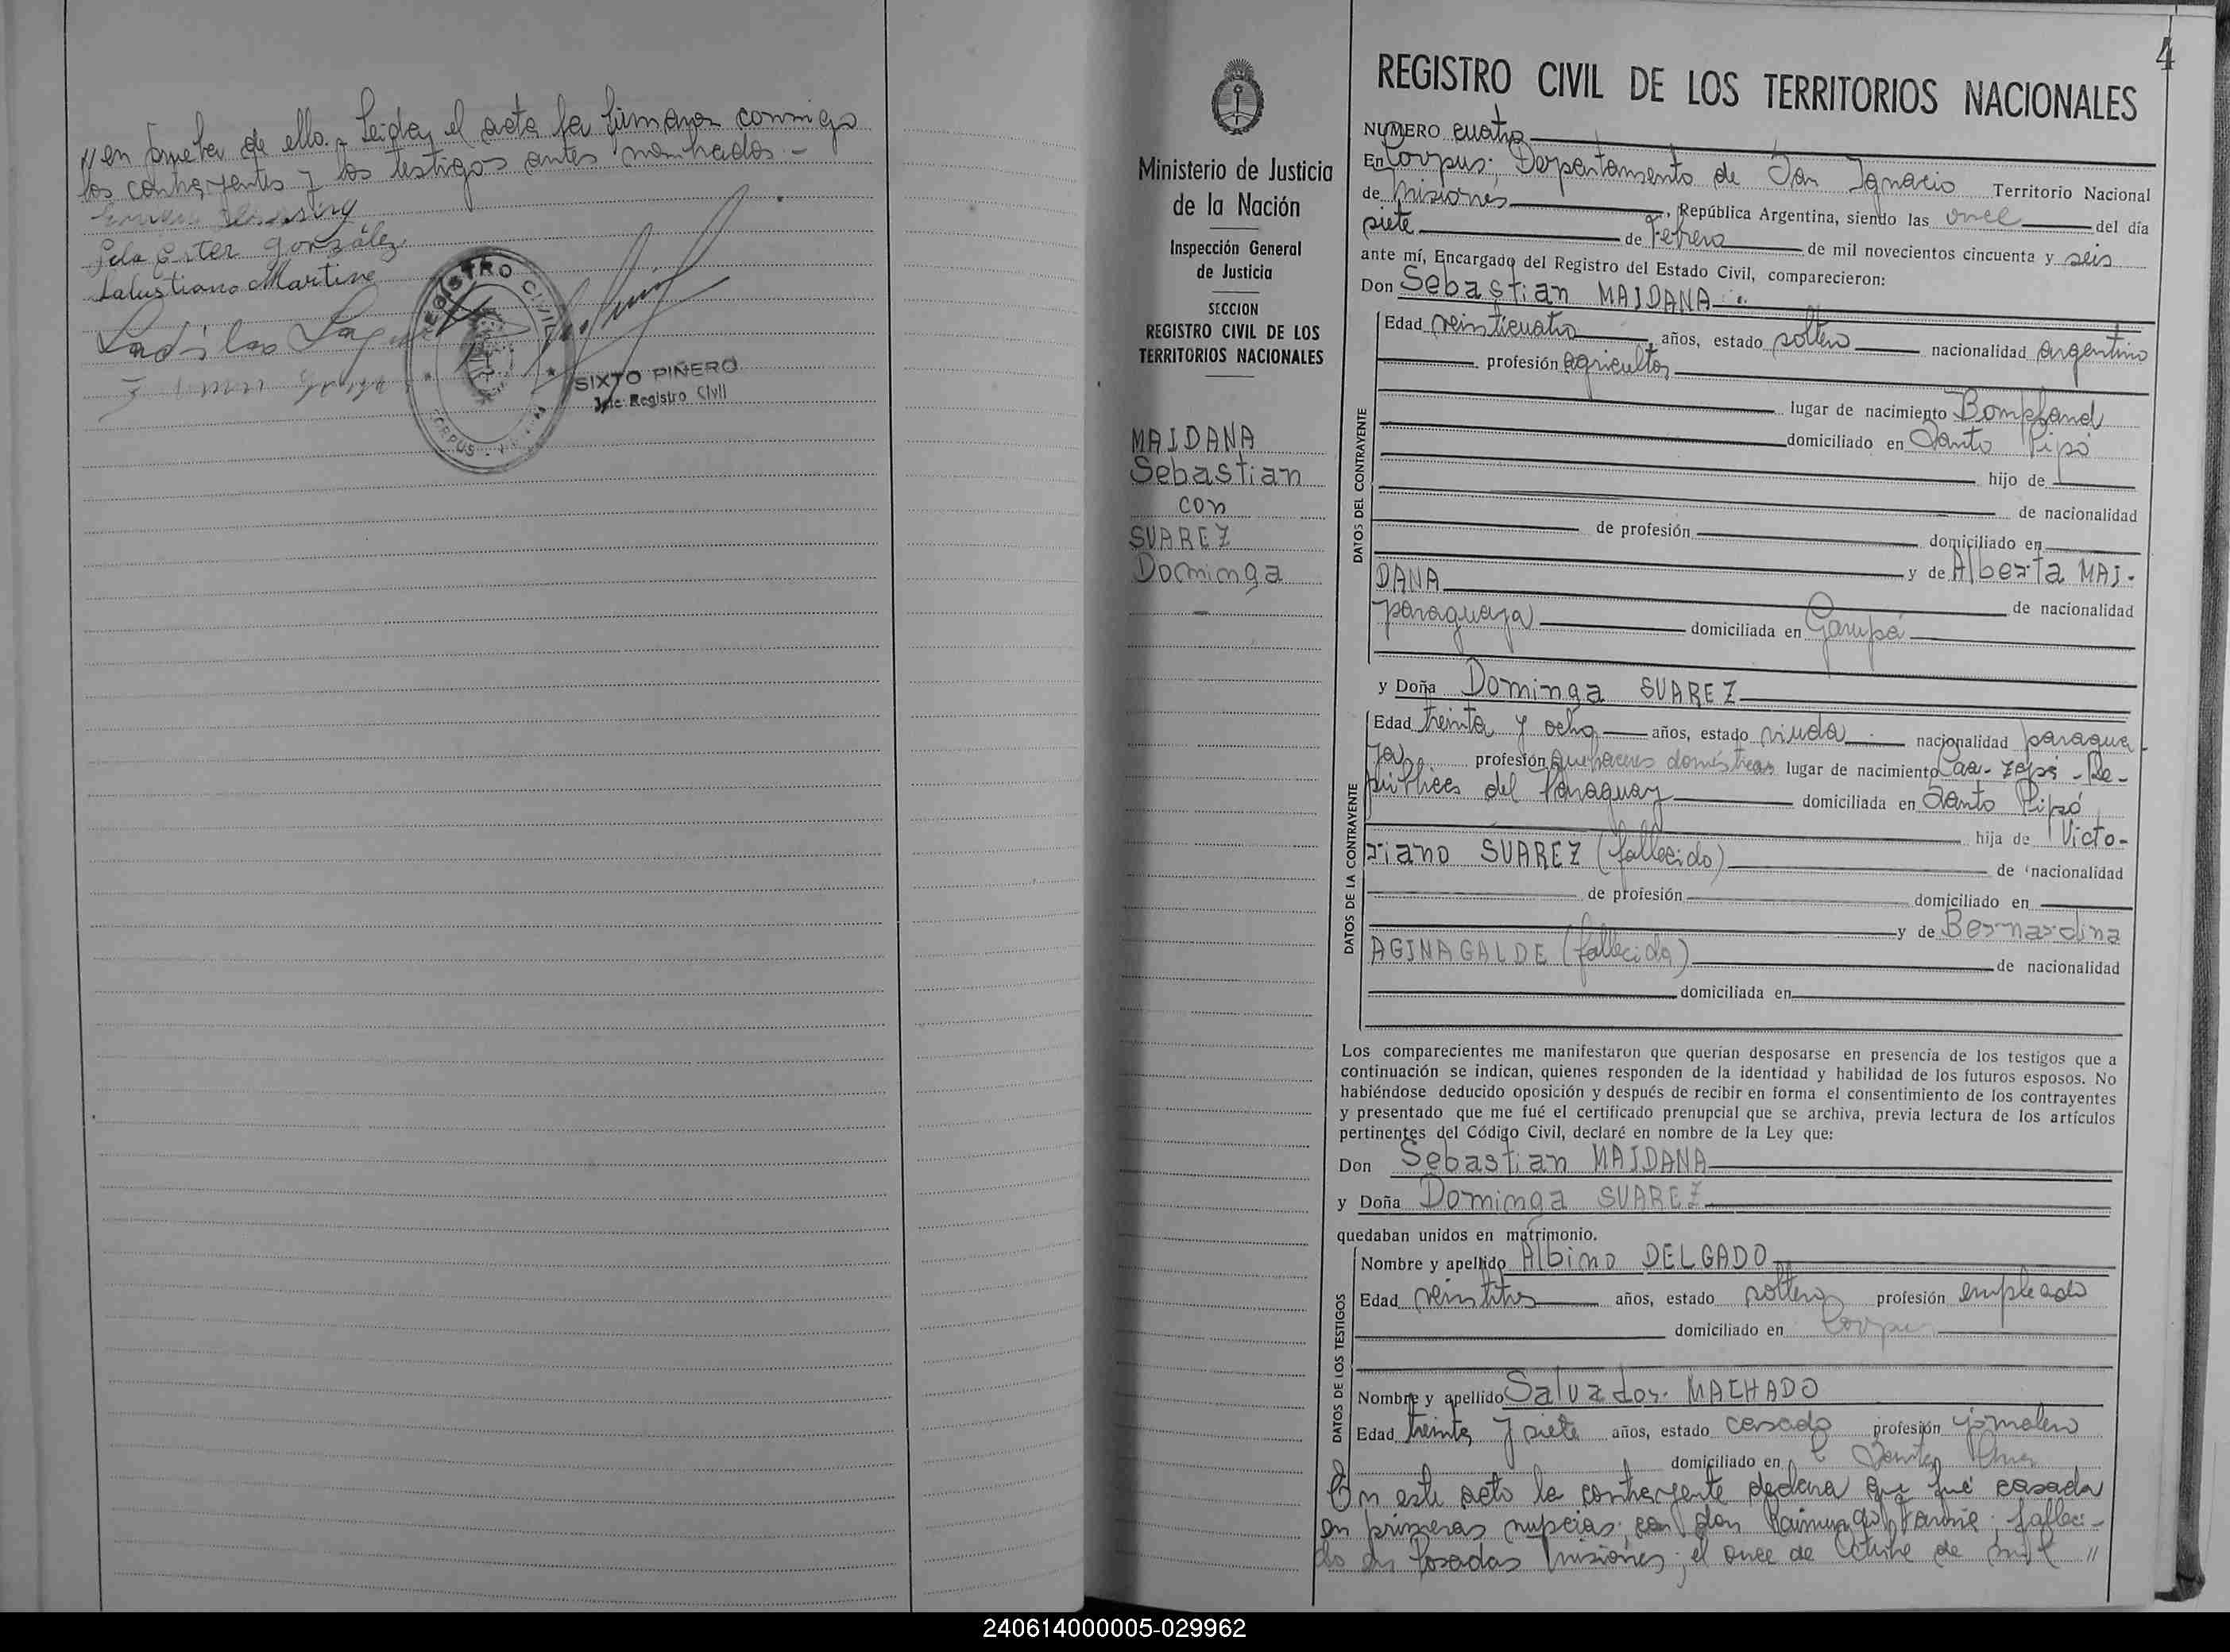 // en prueba de ello.- Leida el acta la firmaron conmigo
los contrayentes y los testigos antes nombrados.-
Ester González
Salustiano Martine
Ladislao
REGISTRO CIVIL
CORPUS
SIXTO PIÑERO
Jefe Registro Civil
4
Ministerio de Justicia
de la Nación
Inspección General
de Justicia
SECCION
REGISTRO CIVIL DE LOS
TERRITORIOS NACIONALES
MAIDANA
Sebastian
con
SUAREZ
Dominga
REGISTRO CIVIL DE LOS TERRITORIOS NACIONALES
NUMERO cuatro
En Corpus, Departamento de San Ignacio Territorio Nacional
de Misiones, República Argentina, siendo las once del día
siete de Febrero de mil novecientos cincuenta y seis
ante mí, Encargado del Registro del Estado Civil, comparecieron:
Don Sebastian MAIDANA
DATOS DEL CONTRAYENTE
Edad veinticuatro años, estado soltero nacionalidad argentino
profesión agricultor
lugar de nacimiento Bompland
domiciliado en Santo Pipó
hijo de
de nacionalidad
de profesión domiciliado en
y de Alberta MAI-
DANA de nacionalidad
paraguaya domiciliada en Garupá
y Doña Dominga SUAREZ
DATOS DE LA CONTRAYENTE
Edad treinta y ocho años, estado viuda nacionalidad paragua-
ya profesión quehaceres domésticos lugar de nacimiento Caa-zapá -Re-
pública del Paraguay domiciliada en Santo Pipó
hija de Victo-
riano SUAREZ (fallecido) de nacionalidad
de profesión domiciliado en
y de Bernardina
AGINAGALDE (fallecida) de nacionalidad
domiciliada en
Los comparecientes me manifestaron que querían desposarse en presencia de los testigos que a
continuación se indican, quienes responden de la identidad y habilidad de los futuros esposos. No
habiéndose deducido oposición y después de recibir en forma el consentimiento de los contrayentes
y presentado que me fué el certificado prenupcial que se archiva, previa lectura de los artículos
pertinentes del Código Civil, declaré en nombre de la Ley que:
Don Sebastian MAIDANA
y Doña Dominga SUAREZ
quedaban unidos en matrimonio.
DATOS DE LOS TESTIGOS
Nombre y apellido Albino DELGADO
Edad veintitres años, estado soltero profesión empleado
domiciliado en Corpus
Nombre y apellido Salvador MACHADO
Edad treinta y siete años, estado casado profesión jornalero
domiciliado en
En este acto la contrayente declara que fué casada
en primeras nupcias con don Raimundo falleci-
do en Posadas Misiones, el once de Octubre de mil //
240614000005-029962